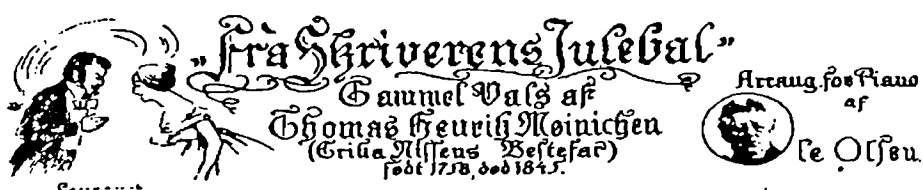 „Fra Skriverens Julebal"
Gammel Vals af
Thomas Henrik Meinichen
(Erika Nissens Bestefar)
født 1758, død 1845.
Arrang. for Piano
af
Ole Olsen